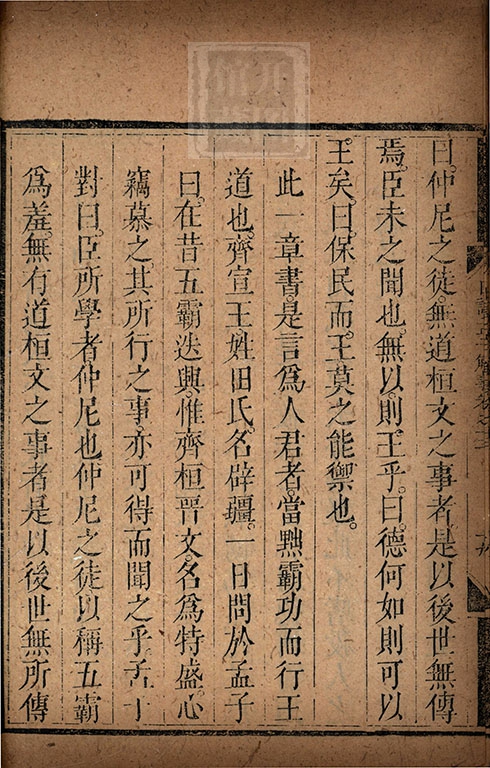 曰。仲尼之徒。無道桓文之事者。是以後世無傳
焉。臣未之聞也。無以。則王乎。曰。德何如則可以
王矣。曰。保民而王。莫之能禦也。
此一章書。是言為人君者。當黜霸功而行王
道也。齊宣王。姓田氏。名辟疆。一日問於孟子
曰。在昔五霸迭興。惟齊桓晉文。名為特盛。心
竊慕之。其所行之事。亦可得而聞之乎。孟子
對曰。臣所學者仲尼也。仲尼之徒。以稱五霸
為羞。無有道桓文之事者。是以後世無所傳